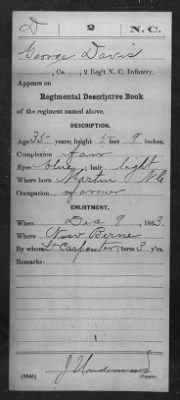 D 2 N.C.
George Davis
, Co. , 2 Reg't N. C. Infantry.
Appears on
Regimental Descriptive Book
of the regiment named above.
DESCRIPTION.
Age 35 years; height 5 feet 9 inches.
Complexion fair
Eyes blue; hair light
Where born Martin NC
Occupation farmer
ENLISTMENT.
When Dec 9, 1863.
Where New Berne
By whom Lt Carpenter; term 3 y'rs.
Remarks:
1
J Underwood
Copyist.